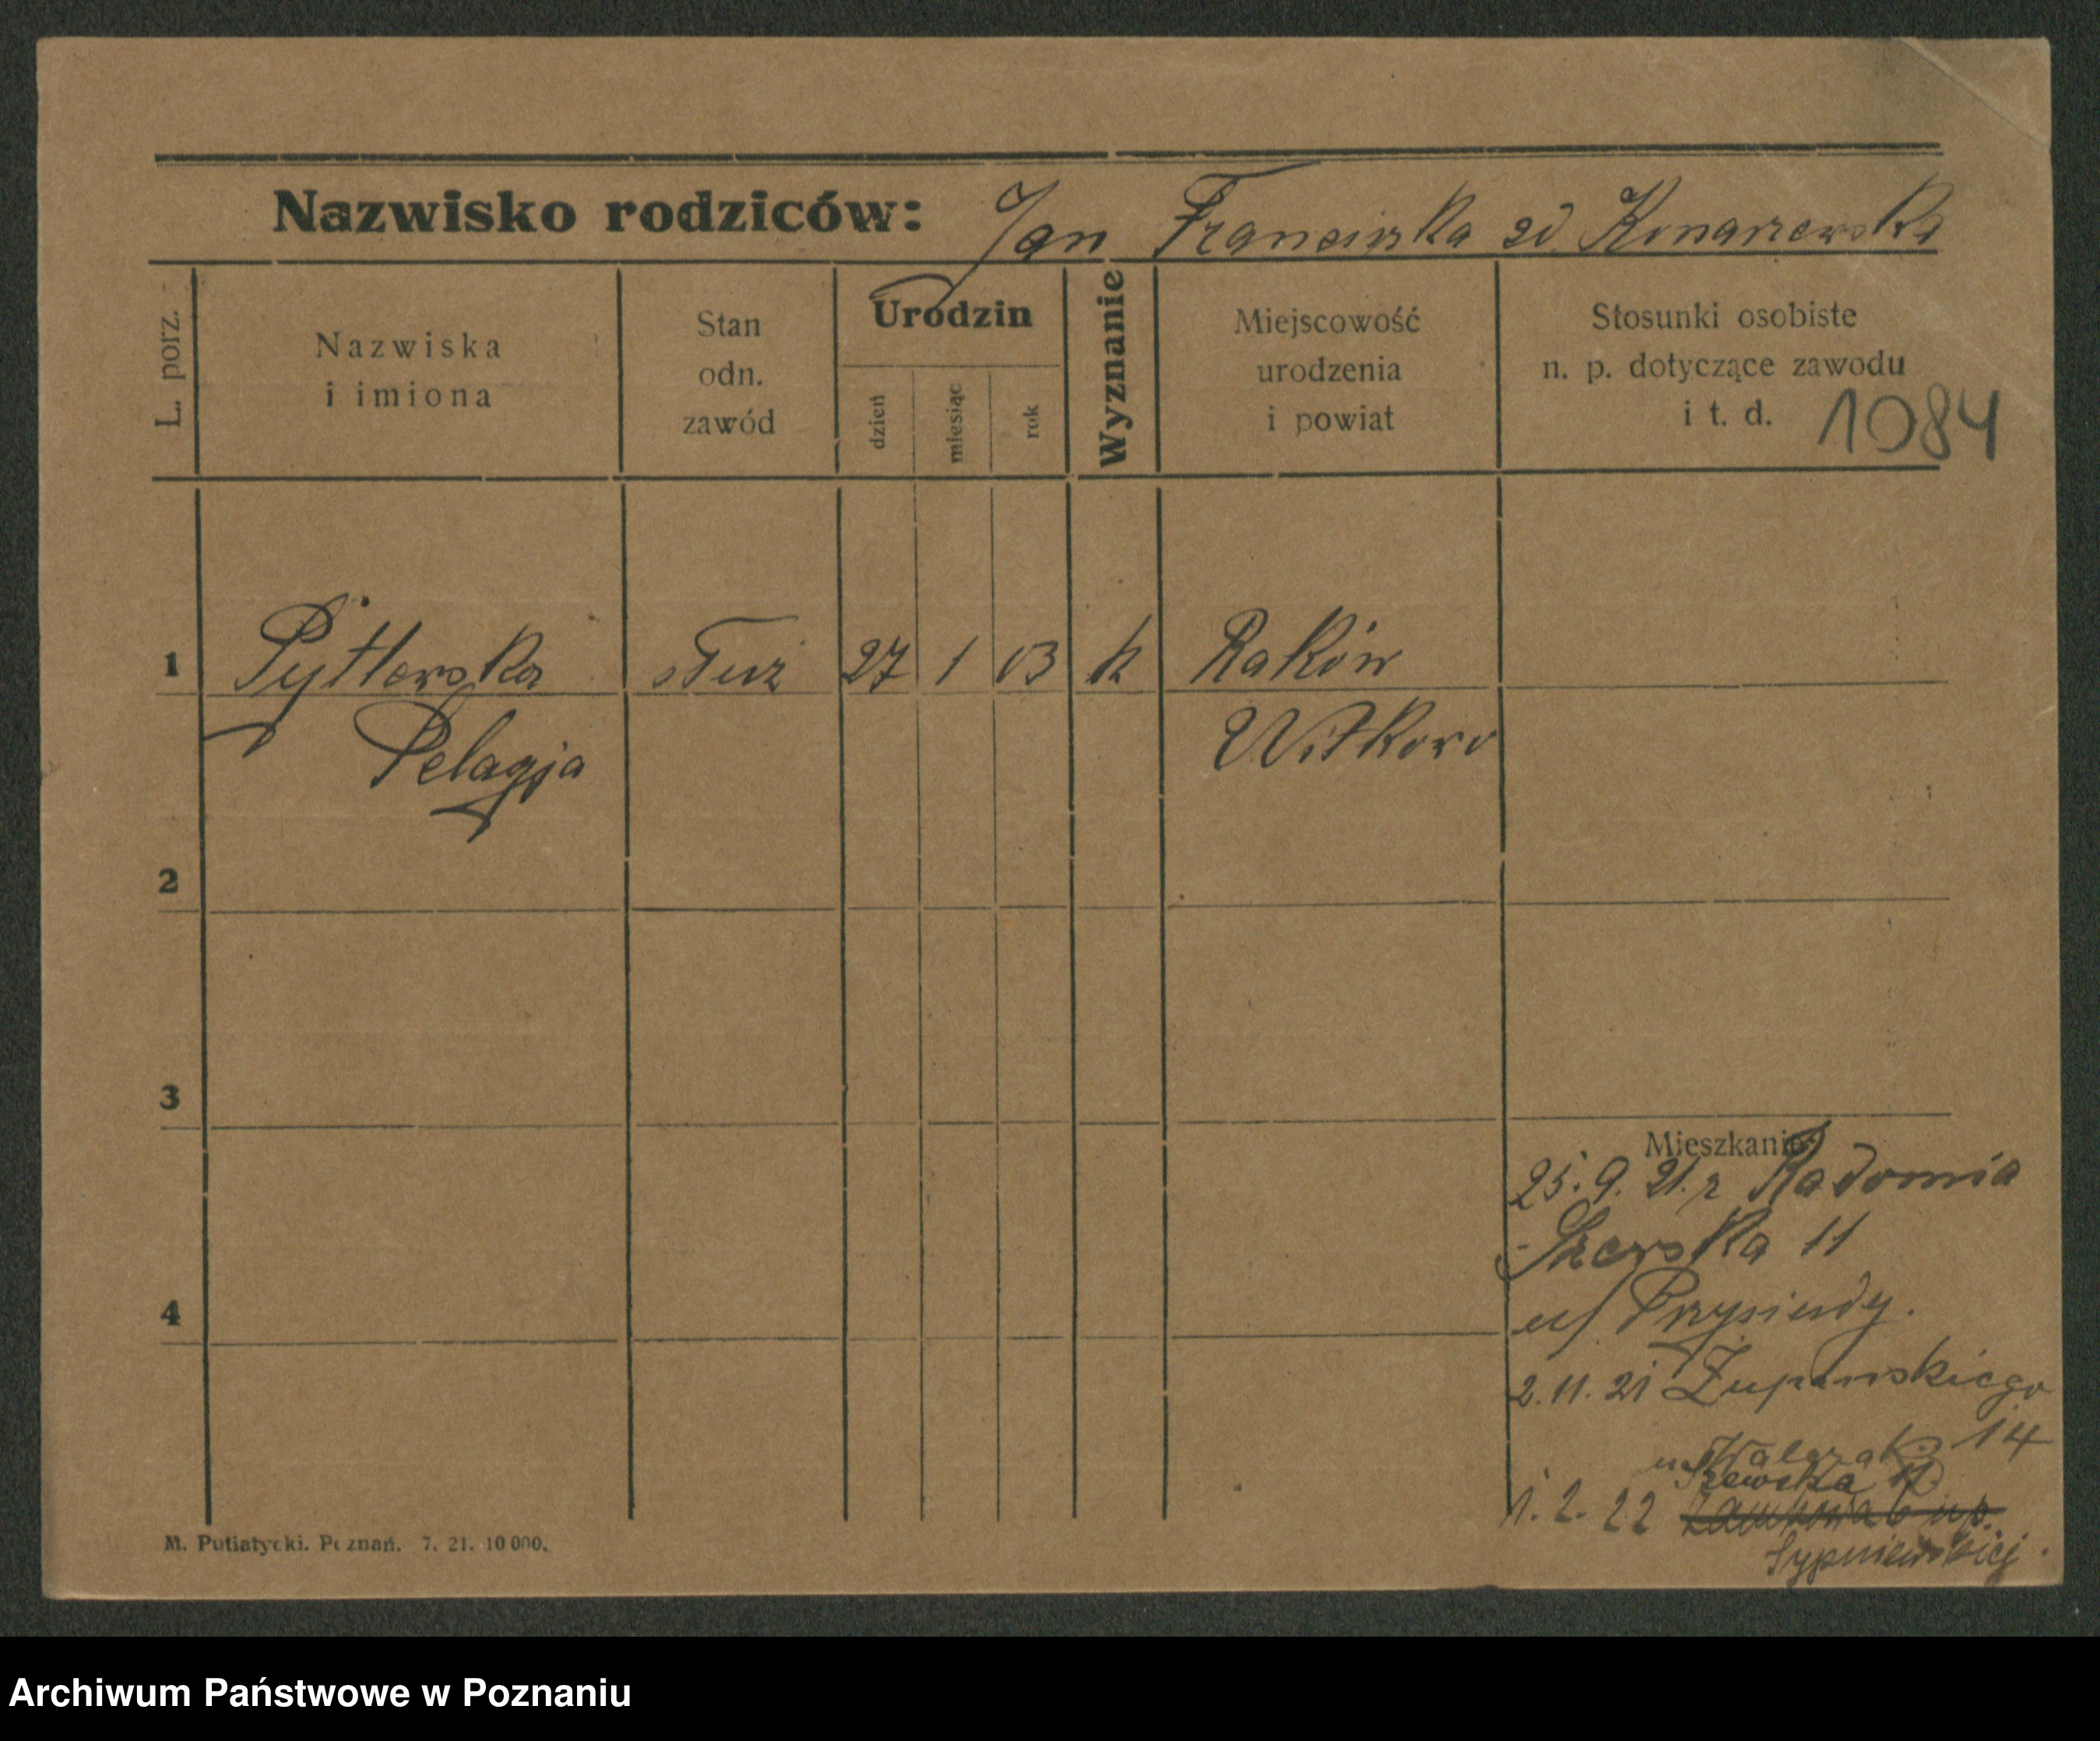 Nazwisko rodziców: Jan Franciszka zd Konarzewska
L. porz.
Nazwiska i imiona
Stan odn. zawód
Urodzin
dzień miesiąc rok
Wyznanie
Miejscowość urodzenia i powiat
Stosunki osobiste n. p. dotyczące zawodu i t. d.
1084
1 Pytlewska służ 27 1 03 k Raków
Pelagja Witkowo
2
3
Mieszkanie:
25. 9. 21. z Radomia
Szewska 11
4
u/ Przysiudy.
2. 11. 21 Żupańskiego
14
Szewska 11
1. 2. 22
Sypniewskiej.
M. Putiatycki. Poznań. 7. 21. 10 000.
Archiwum Państwowe w Poznaniu